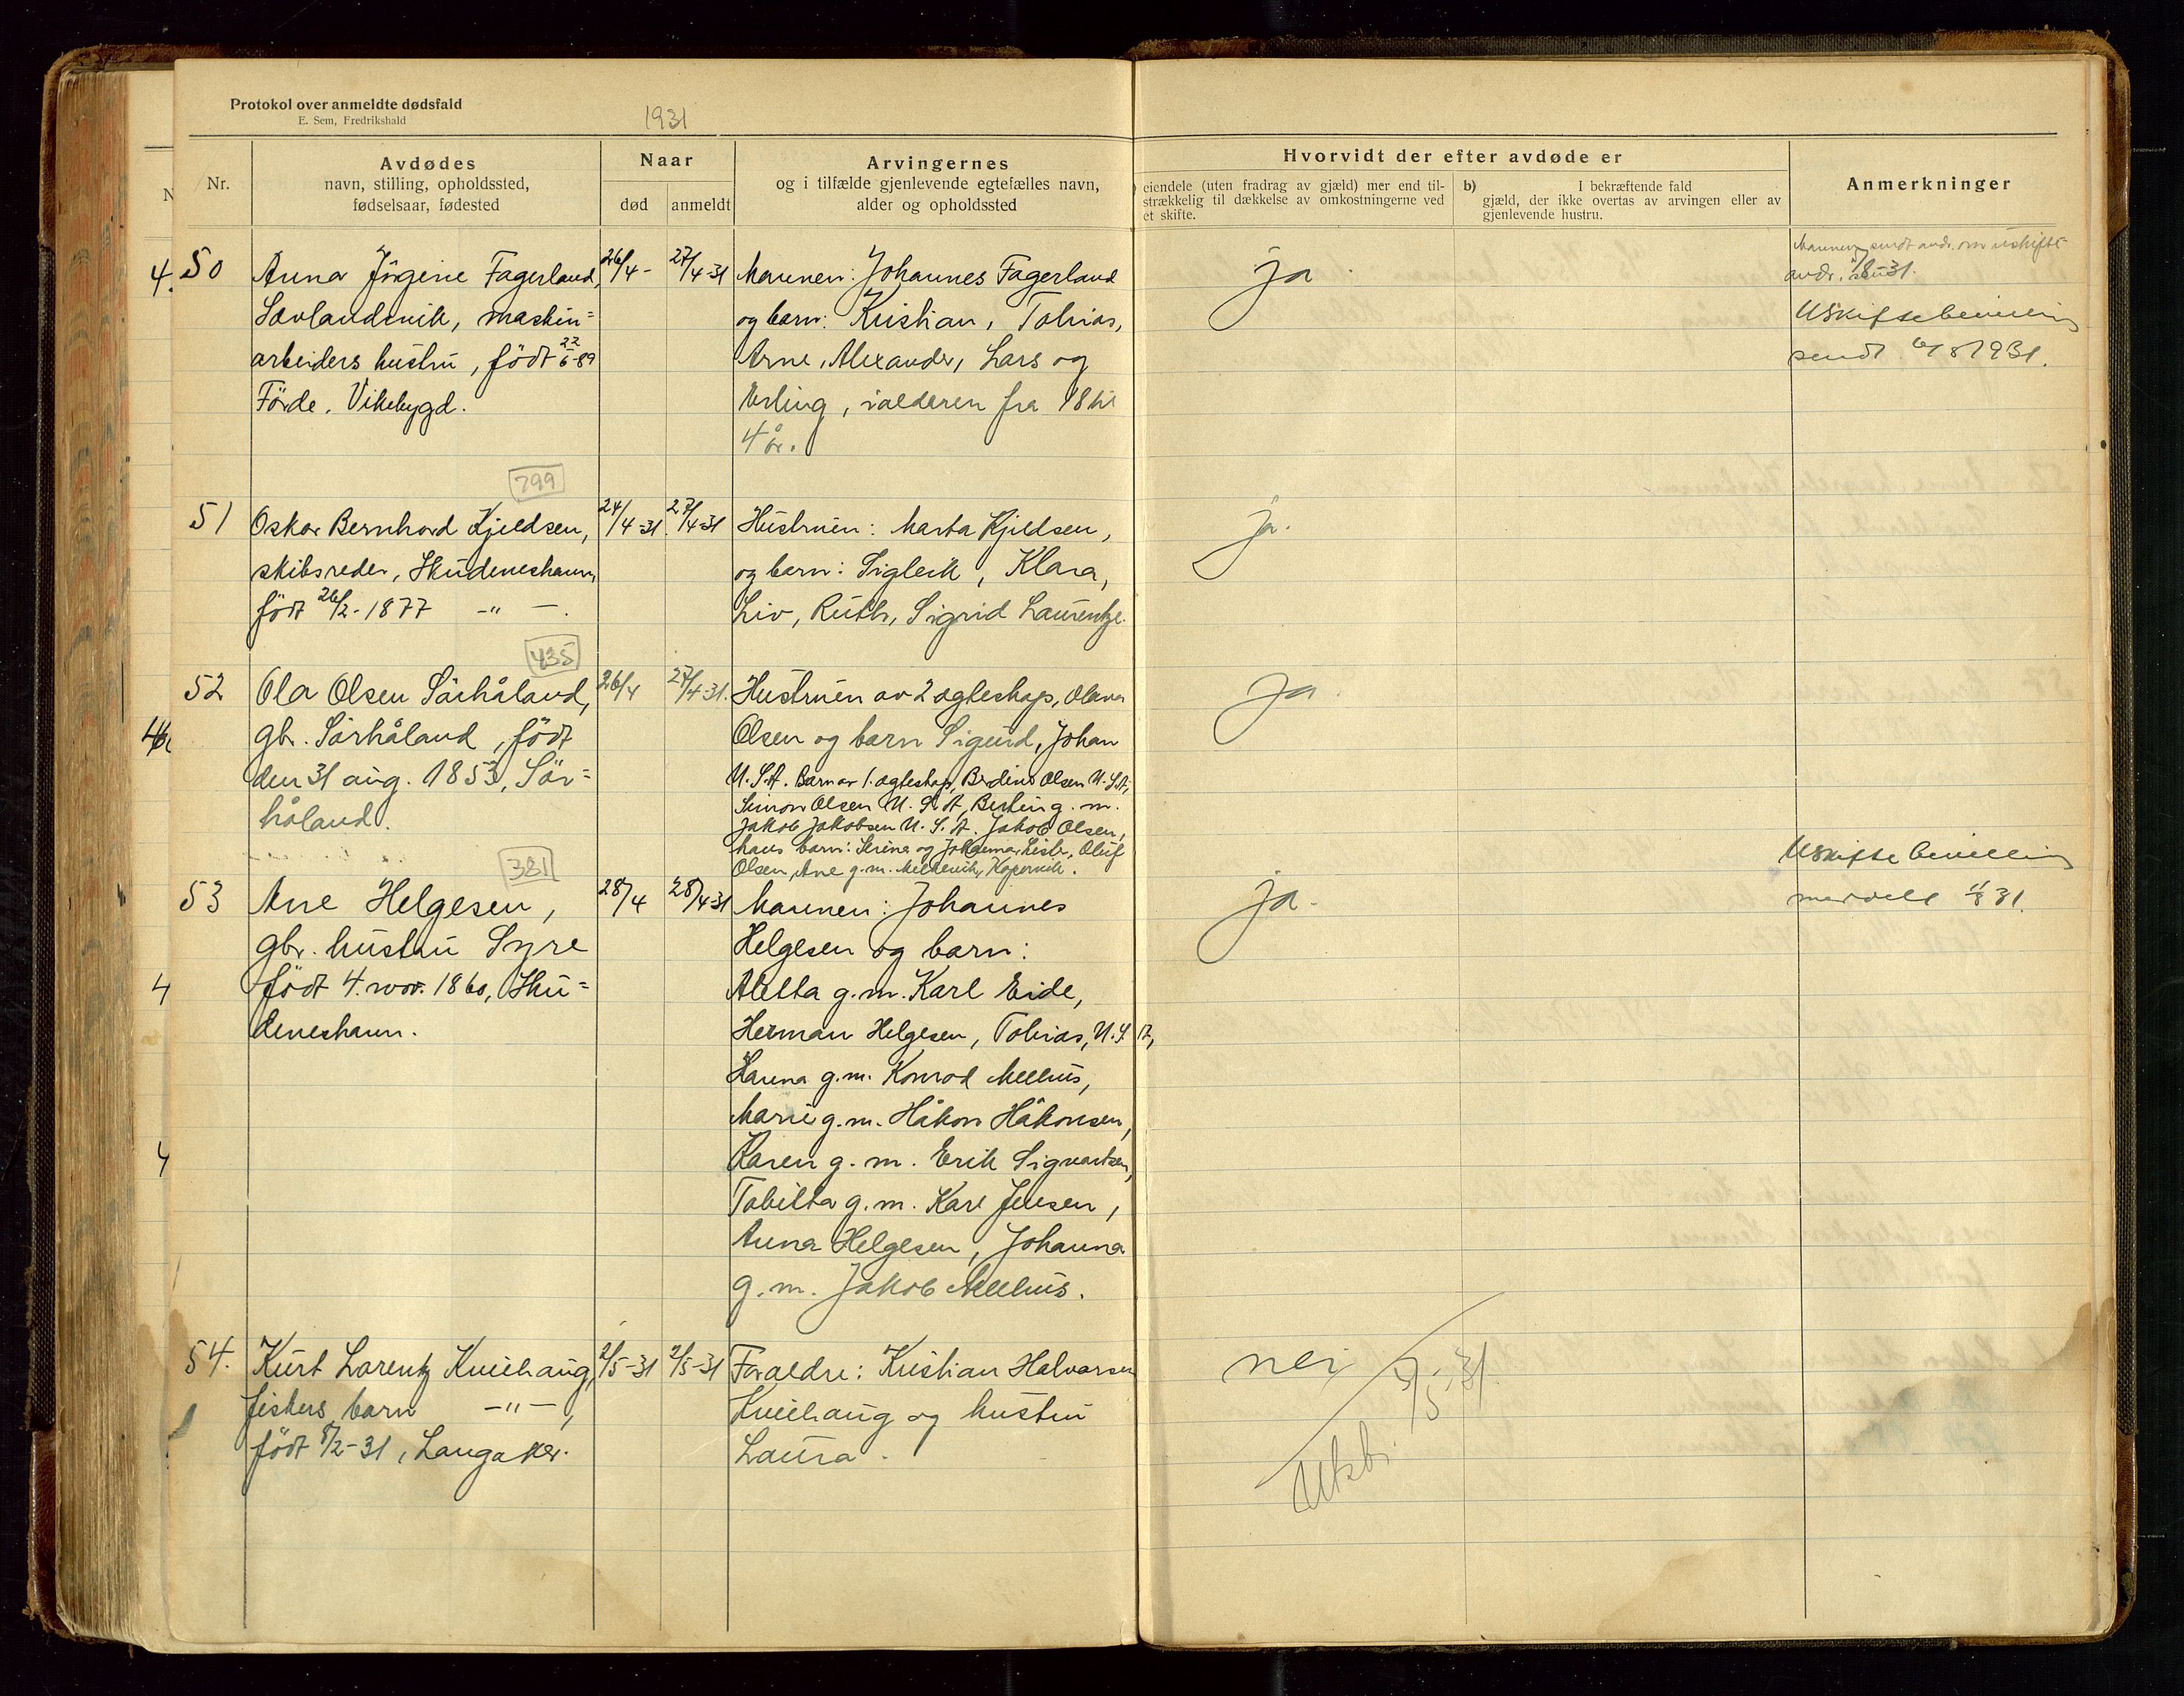 Protokol over anmeldte dødsfald
E. Sem, Fredrikshald
1931
Nr.
Avdødes
navn, stilling, opholdssted,
fødselsaar, fødested
Naar
død
anmeldt
Arvingernes
og i tilfælde gjenlevende egtefælles navn,
alder og opholdssted
Hvorvidt der efter avdøde er
eiendele (uten fradrag av gjæld) mer end til-
strækkelig til dækkelse av omkostningerne ved
et skifte.
b) I bekræftende fald
gjæld, der ikke overtas av arvingen eller av
gjenlevende hustru.
Anmerkninger
50
Anna Jörgine Fagerland,
Sævlandsvik, maskin=
arbeiders hustru, födt 22/6-89
Förde, Vikebygd.
26/4-
27/4-31
Mannen: Johannes Fagerland
og barn: Kristian, Tobias,
Arne, Alexander, Lars og
Erling, i alderen fra 18 til
4 år.
ja
Mannen sendt andr. om uskifte
andr.
Uskiftebevilling
sendt 6/8 1931.
799
51
Oskar Bernhard Kjeldsen,
skibsreder, Skudeneshavn,
födt 26/2-1877 -"-.
24/4-31.
27/4-31
Hustruen: Marta Kjeldsen,
og barn: Sigleik, Klara,
Liv, Ruth, Sigrid Laurentze.
ja.
435
52
Ola Olsen Sörhåland,
gbr. Sörhåland, födt
den 31 aug. 1853, Sör=
håland.
26/4
27/4-31.
Hustruen av 2 ægteskap, Olava
Olsen og barn Sigurd, Johan
U.S.A. Barn av 1. ægteskap, Berdine Olsen U.S.A,
Simon Olsen U.S.A, Bertin g. m.
Jakob Jakobsen U.S.A. Jakob Olsen,
hans barn: Serina og Johanna, Oluf
Olsen, Ane g.m. Kopervik.
ja.
381
53
Ane Helgesen,
gbr. hustru Syre
födt 4. nov. 1860, Sku=
deneshavn.
28/4
28/4-31
Mannen: Johannes
Helgesen og barn:
Aletta g.m. Karl Eide,
Herman Helgesen, Tobias, U.S.A,
Hanna g.m. Konrad Melhus,
Marie g.m. Håkon Håkonsen,
Karen g. m. Erik Sigvartsen,
Tabitta g.m. Karl Jensen,
Anna Helgesen, Johanna
g.m. Jakob Melhus.
ja.
Uskifte bevilling
meddelt 11/8 31.
54.
Kurt Lorentz Kniehaug,
fiskers barn -"-,
födt 8/2-31, Langaker.
2/5-31
2/5-31
Foreldre: Kristian Halvorsen
Kniehaug og hustru
Laura.
nei
Utskr. 3/5-31